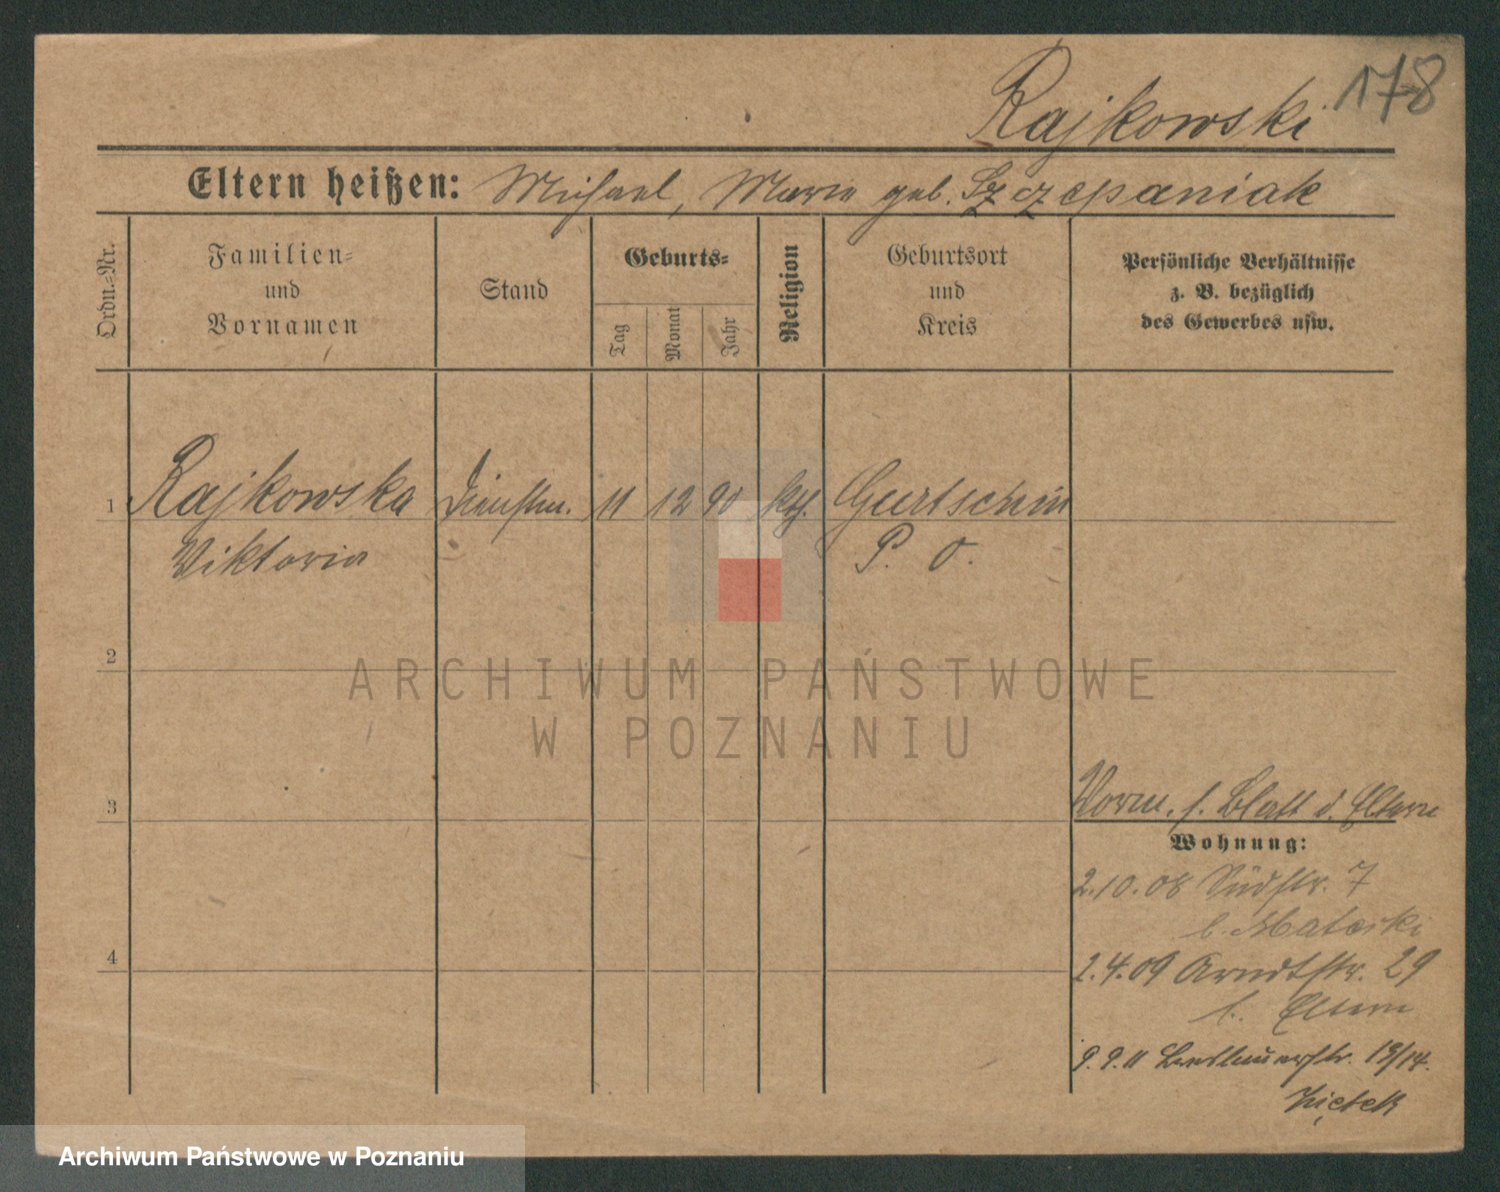 Rajkowski 178
Eltern heißen: Michael, Marie geb. Szczepaniak
Ordn.-Nr.
Familien-
und
Vornamen
Stand
Geburts-
Tag
Monat
Jahr
Religion
Geburtsort
und
Kreis
Persönliche Verhältnisse
z. B. bezüglich
des Gewerbes usw.
1 Rajkowska Dienstm. 11 12 90 kth. Gurtschin
Viktoria P. O.
2
ARCHIWUM PAŃSTWOWE
W POZNANIU
3 Vorm. s. Blatt d. Eltern
Wohnung:
2.10.08 Südstr. 7
b. Mateski
4
2.4.09 Arndtstr. 29
b. Eltern
9.9.11 13/14.
Archiwum Państwowe w Poznaniu